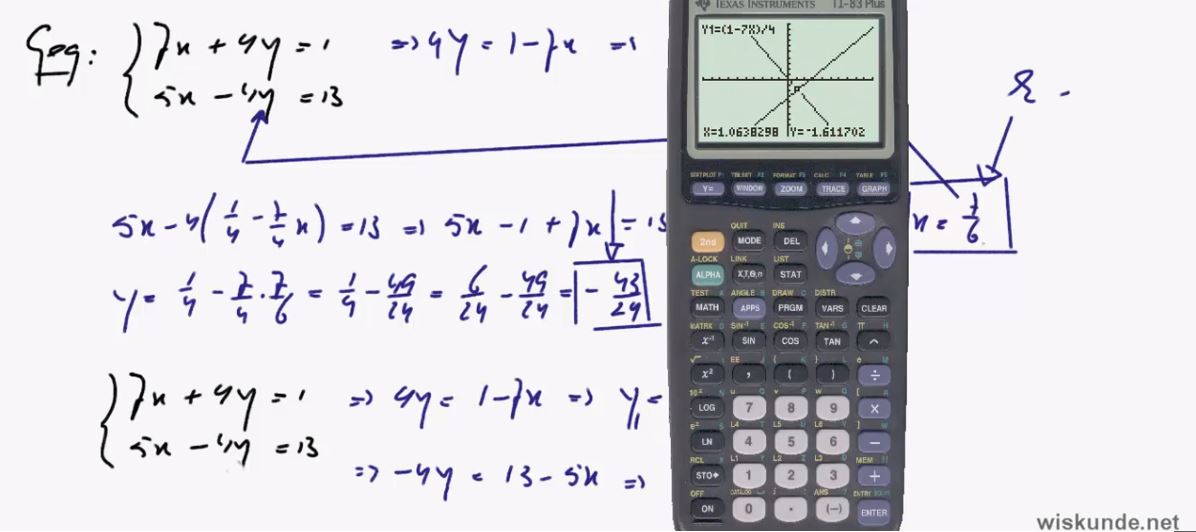 Geg: { 7x + 4y = 1 => 4y = 1 - 7x =>
5x - 4y = 13
R.
5x - 4(1/4 - 7/4 x) = 13 => 5x - 1 + 7x = 13
x = 7/6
y = 1/4 - 7/4 . 7/6 = 1/4 - 49/24 = 6/24 - 49/24 = - 43/24
{ 7x + 4y = 1 => 4y = 1 - 7x => y1 =
5x - 4y = 13
=> -4y = 13 - 5x =>
TEXAS INSTRUMENTS TI-83 Plus
Y1=(1-7X)/4
X=1.0638298 Y=-1.611702
STAT PLOT F1 TBLSET F2 FORMAT F3 CALC F4 TABLE F5
Y= WINDOW ZOOM TRACE GRAPH
QUIT INS
2nd MODE DEL
A-LOCK LINK LIST
ALPHA X,T,θ,n STAT
TEST A ANGLE B DRAW C DISTR
MATH APPS PRGM VARS CLEAR
MATRX D SIN⁻¹ E COS⁻¹ F TAN⁻¹ G π H
x⁻¹ SIN COS TAN ^
√ I EE J { K } L e M
x² , ( ) ÷
10ˣ N u O v P w Q [ R
LOG 7 8 9 X
eˣ S L4 T L5 U L6 V ] W
LN 4 5 6 −
RCL X L1 Y L2 Z L3 θ MEM "
STO▸ 1 2 3 +
OFF CATALOG i : ANS ? ENTRY SOLVE
ON 0 . (−) ENTER
wiskunde.net